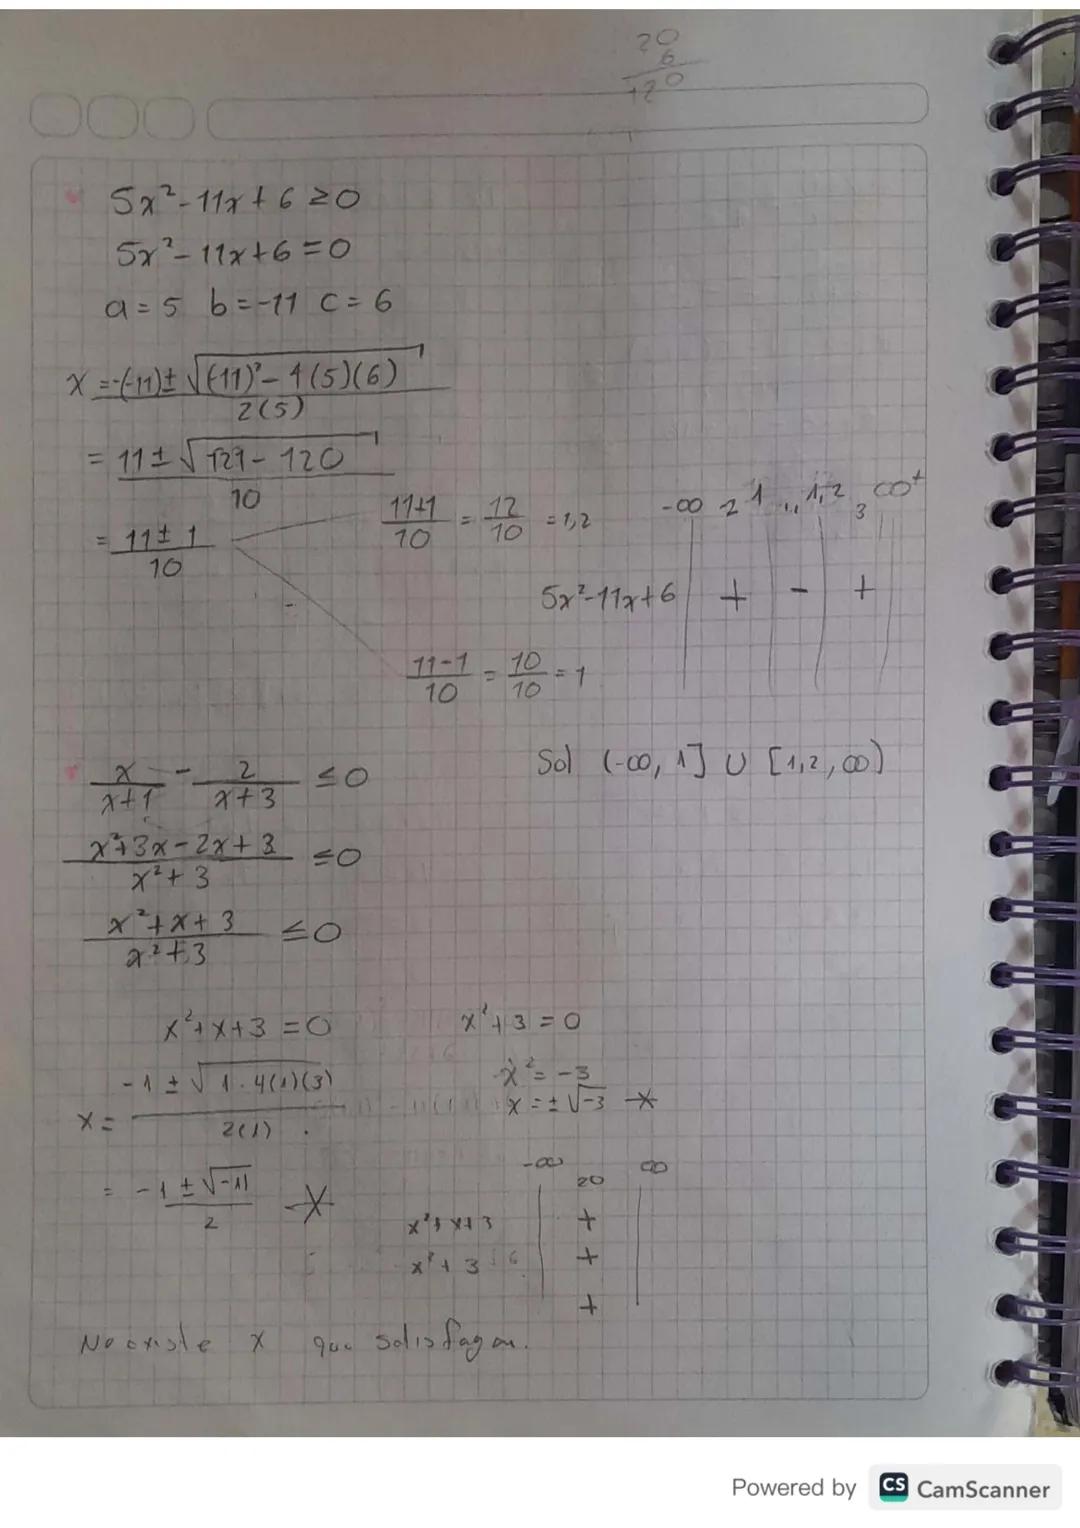 20
6
120
5x²-11x+6 ≥0
5x²-11x+6=0
a=5 b=-11 c=6
x=-(-11)±√(-11)²-4(5)(6)
2(5)
=11±√121-120
10
=11±1
10
11+1/10 = 12/10 =1,2
11-1/10 = 10/10 =1
-∞ 2 1 1,2 3 ∞⁺
5x²-11x+6 + - +
Sol (-∞, 1] ∪ [1,2, ∞)
x/x+1 - 2/x+3 ≤0
x²+3x-2x+3
x²+3
≤0
x²+x+3
x²+3
≤0
x²+x+3=0
x=
-1±√1-4(1)(3)
2(1)
= -1±√-11
2
x²+3=0
x²=-3
x=±√-3
-∞ 20 ∞
x²+x+3 +
x²+3 +
+
No existe x que satisfagan.
Powered by CS CamScanner